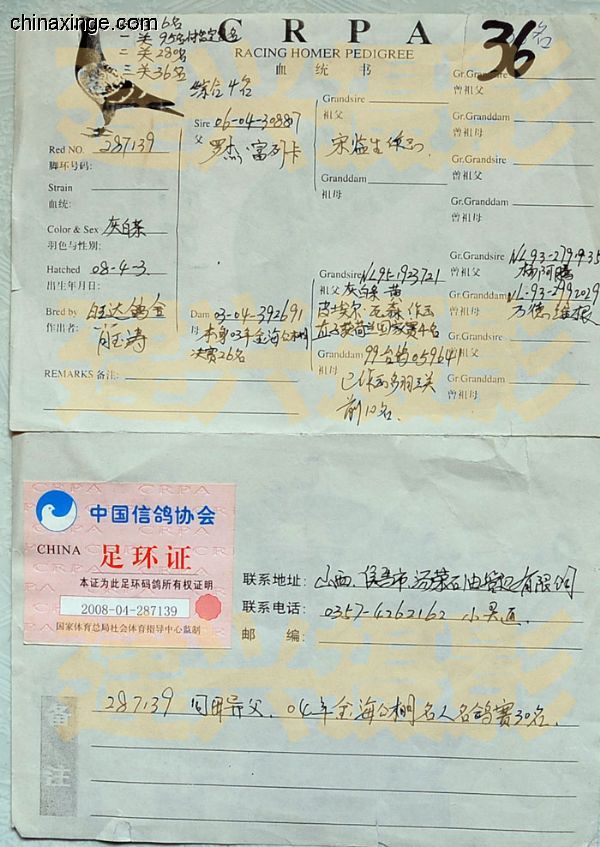 chinaxinge.com
C R P A
RACING HOMER PEDIGREE
血 统 书
36名
一关95名
二关280名
三关36名
综合4名
Red NO. 287139
脚环号码:
Strain
血统:
Color & Sex 灰白条
羽色与性别:
Hatched 08-4-3
出生年月日:
Bred by 旺达鸽舍
作出者:
REMARKS 备注:
Sire 06-04-30887
父 罗杰·富列卡
Dam 03-04-392691
母 本身03年金海公棚
决赛26名
Grandsire
祖父
Granddam
祖母
Grandsire NL95-1923721
祖父 灰白条 黄
Granddam 99台鸽059641
祖母
前10名.
Gr.Grandsire
曾祖父
Gr.Granddam
曾祖母
Gr.Grandsire
曾祖父
Gr.Granddam
曾祖母
Gr.Grandsire NL93-2791935
曾祖父 杨阿腾
Gr.Granddam NL-93-2992029
曾祖母 万德维根
Gr.Grandsire
曾祖父
Gr.Granddam
曾祖母
CRPA
中国信鸽协会
CHINA 足环证
本证为此足环码鸽所有权证明
2008-04-287139
国家体育总局社会体育指导中心监制
联系地址: 山西.侯马市
联系电话: 0357-4262162
邮 编:
备注
287139 同母异父. 04年金海公棚名人名鸽赛30名.